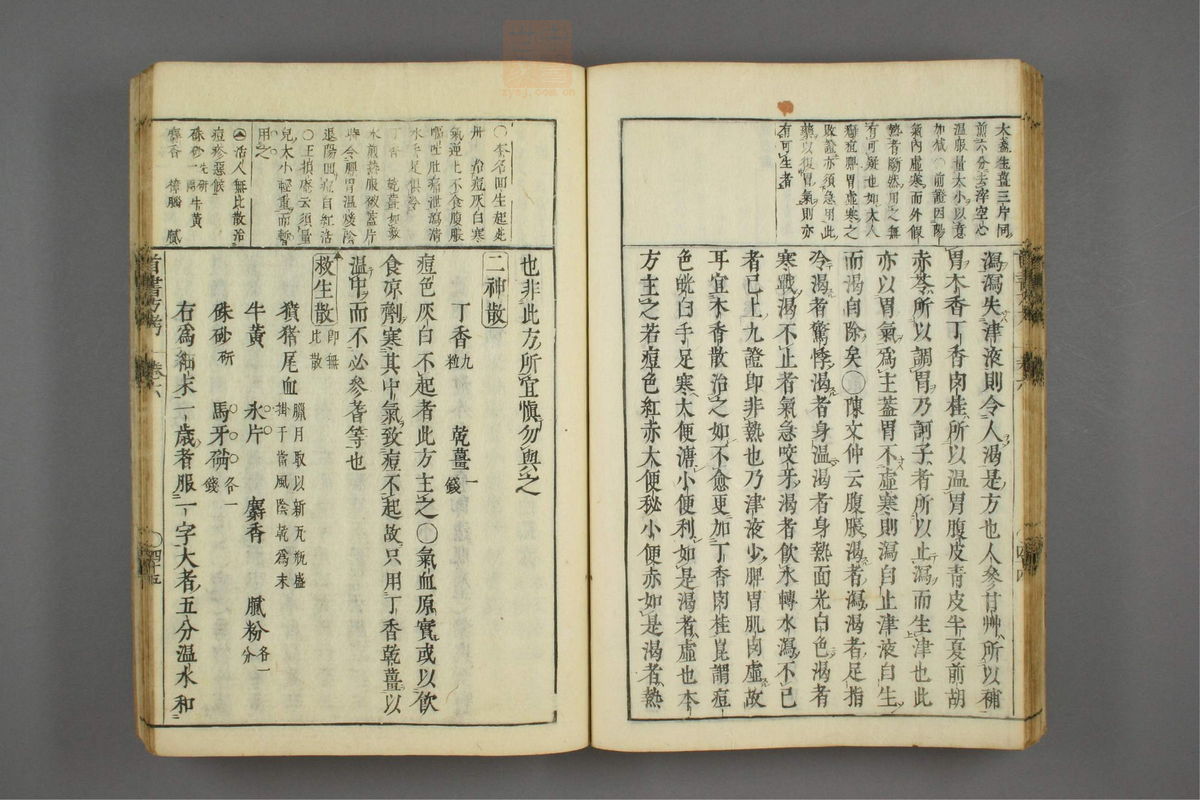 大棗生薑三片同
前六分去滓空心
溫服量大小以意
加減〇前證因陽
氣內虛寒而外假
熱者斷然用之無
有可疑也如大人
癰疽脾胃虛寒之
敗證亦須急用此
藥以復胃氣則亦
有可生者
瀉瀉失津液則令人渴是方也人參甘艸所以補
胃木香丁香肉桂所以溫胃腹皮青皮半夏前胡
赤苓所以調胃乃訶子者所以止瀉而生津也此
亦以胃氣爲主蓋胃不虛寒則瀉自止津液自生
而渴自除矣〇陳文仲云腹脹渴者瀉渴者足指
冷渴者驚悸渴者身溫渴者身熱面光白色渴者
寒戰渴不止者氣急咬牙渴者飲水轉水瀉不已
者已上九證卽非熱也乃津液少脾胃肌肉虛故
耳宜木香散治之如不愈更加丁香肉桂崑謂痘
色㿠白手足寒大便溏小便利如是渴者虛也本
方主之若痘色紅赤大便秘小便赤如是渴者熱
〇本名回生起死
丹 治痘灰白寒
氣逆上不食腹脹
嘔吐肚痛泄瀉清
水手足俱冷
丁香 乾薑如數
水煎熱服被蓋片
時令脾胃溫煖陰
退陽回痘自紅活
〇王損菴云須量
兒大小輕重而暫
用之
活人無比散治
痘疹惡候
硃砂一兩先研 牛黃
麝香 樟腦 膩
也非此方所宜愼勿與之
二神散
丁香九粒 乾薑一錢
痘色灰白不起者此方主之〇氣血原實或以飲
食凉劑寒其中氣致痘不起故只用丁香乾薑以
溫中而不必參耆等也
救生散卽無比散
獖猪尾血臘月取以新瓦瓶盛掛于當風陰乾爲末
牛黃 氷片 麝香 膩粉各一分
硃砂研 馬牙硝各一錢
右爲細末一歲者服一字大者五分溫水和
首書方考 卷六 〇四十五
〇四十四
zysj.com.cn